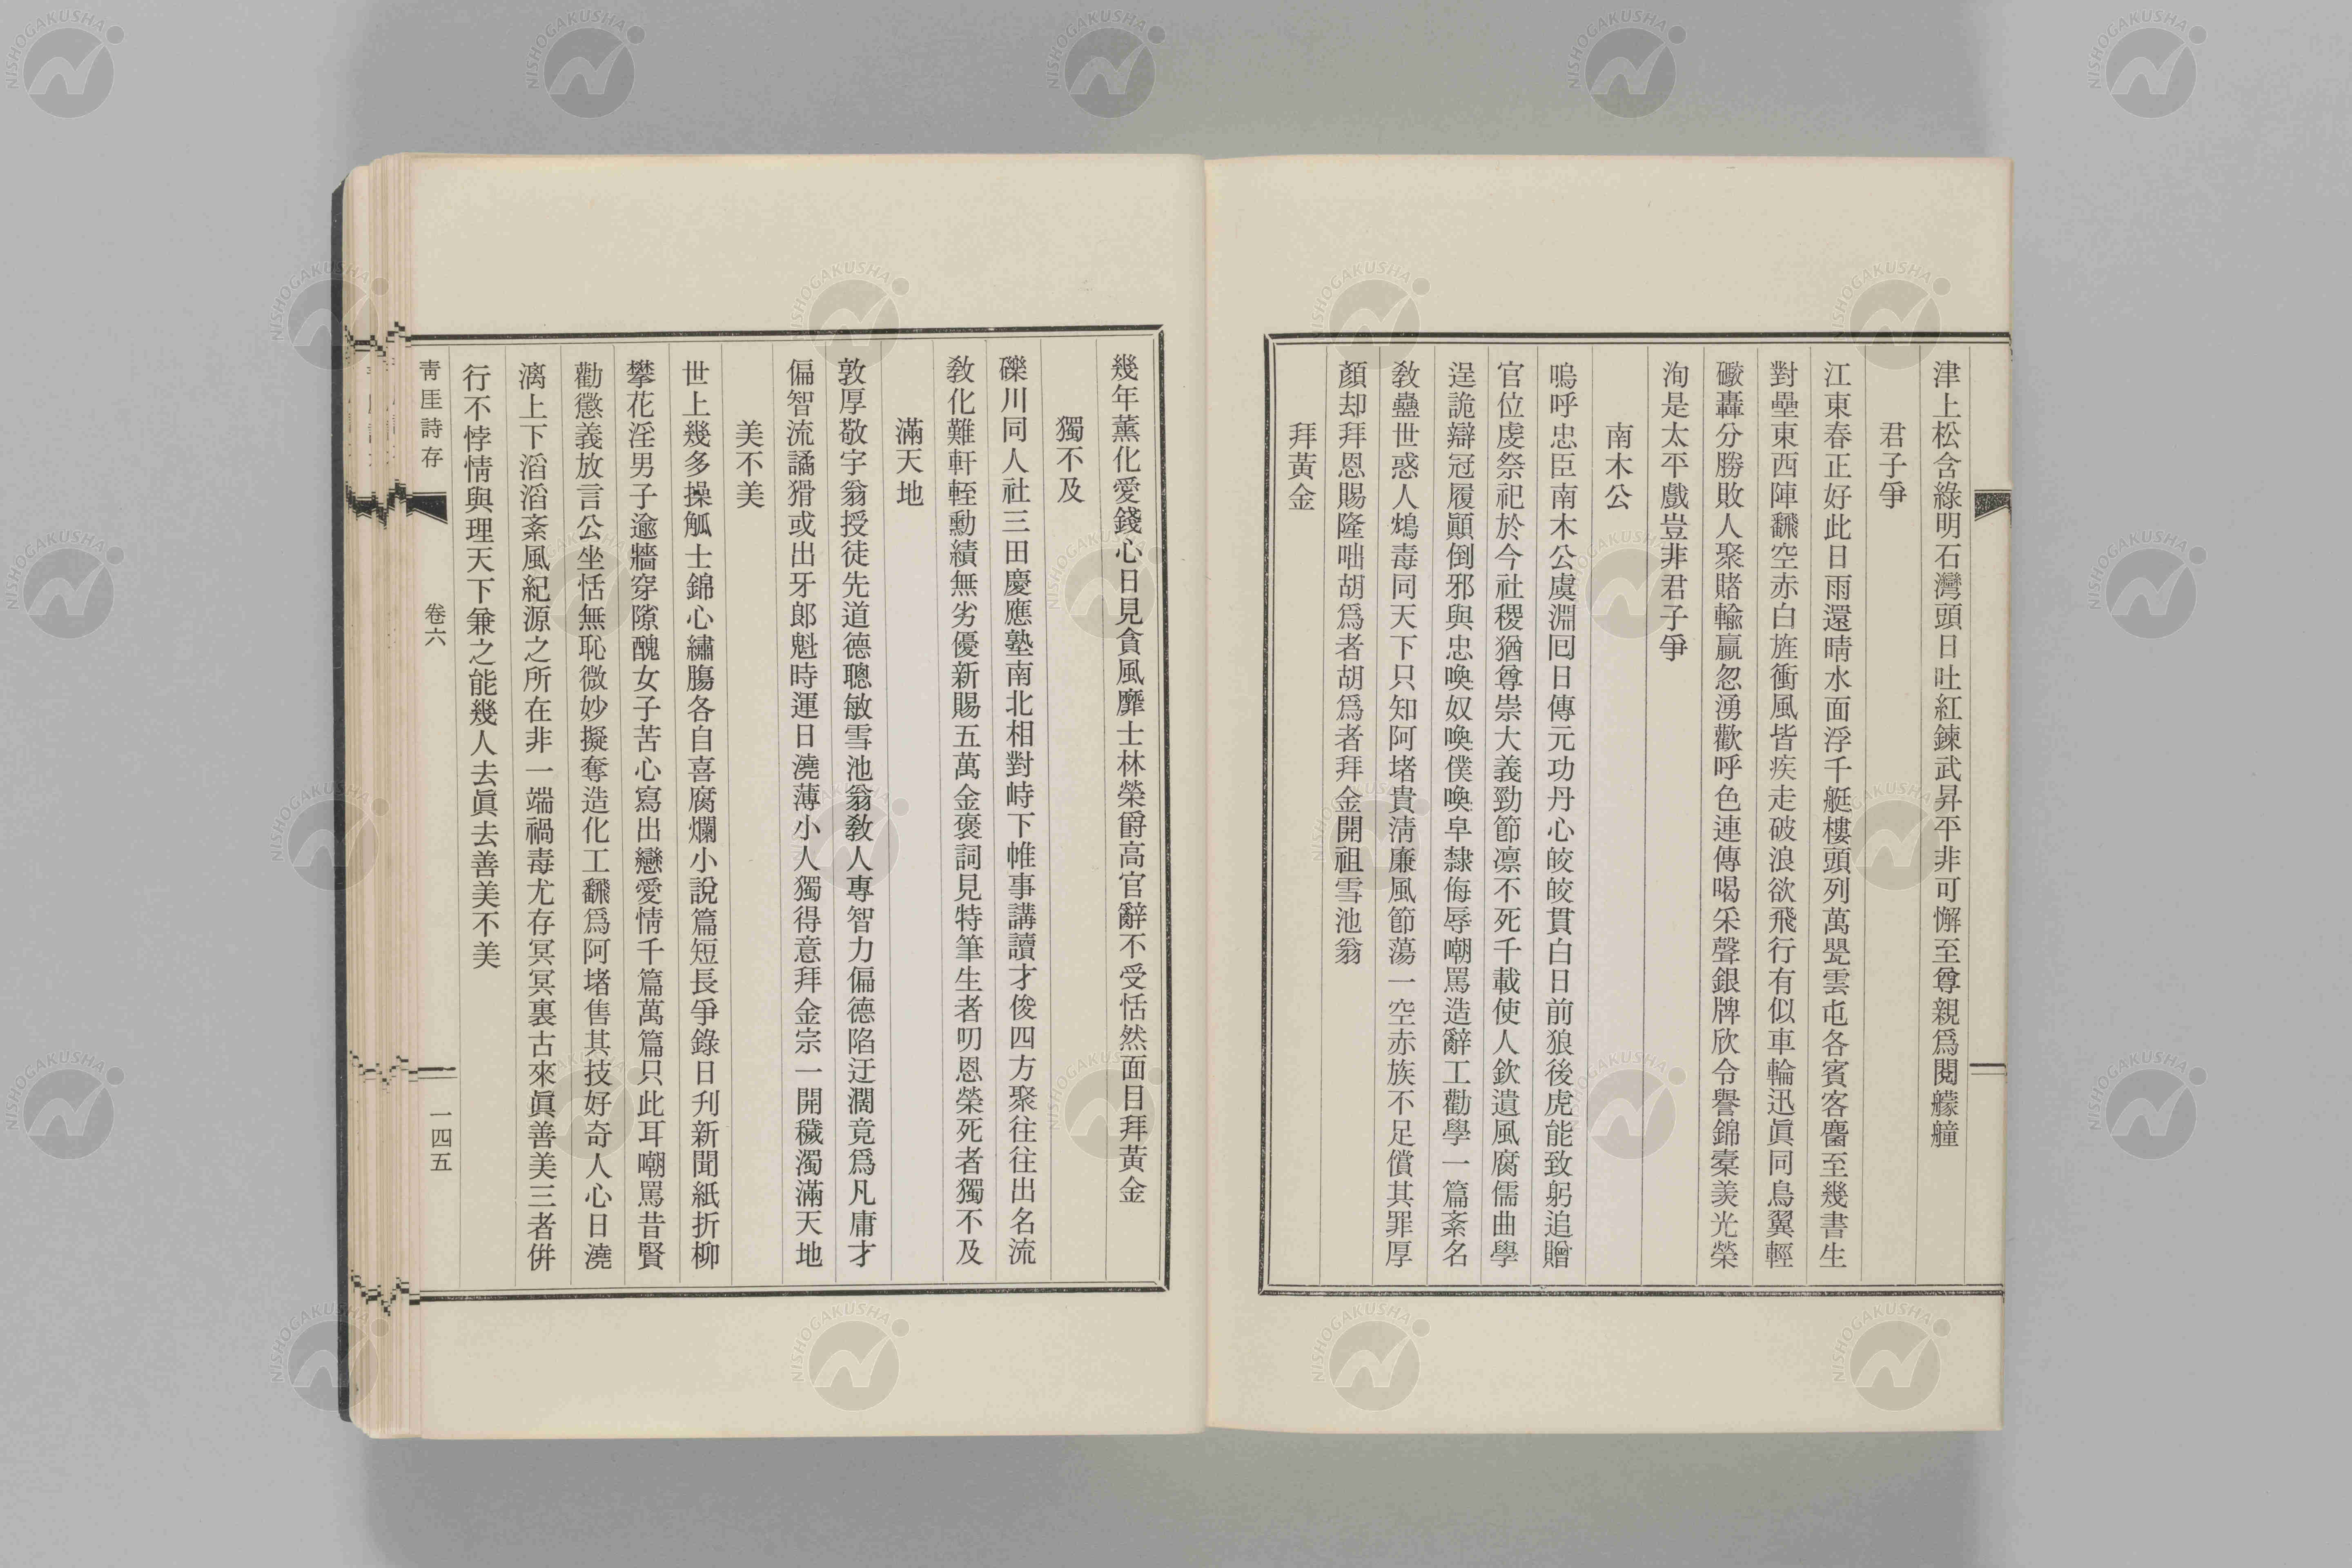 津上松含綠明石灣頭日吐紅鍊武昇平非可懈至尊親爲閱艨艟
君子爭
江東春正好此日雨還晴水面浮千艇樓頭列萬甖雲屯各賓客麕至幾書生
對壘東西陣飜空赤白旌衝風皆疾走破浪欲飛行有似車輪迅眞同鳥翼輕
礮轟分勝敗人聚賭輸贏忽湧歡呼色連傳喝采聲銀牌欣令譽錦櫜羨光榮
洵是太平戲豈非君子爭
南木公
嗚呼忠臣南木公虞淵囘日傳元功丹心皎皎貫白日前狼後虎能致躬追贈
官位虔祭祀於今社稷猶尊崇大義勁節凛不死千載使人欽遺風腐儒曲學
逞詭辯冠履顚倒邪與忠喚奴喚僕喚皁隸侮辱嘲罵造辭工勸學一篇紊名
敎蠱世惑人鴆毒同天下只知阿堵貴淸廉風節蕩一空赤族不足償其罪厚
顏却拜恩賜隆咄胡爲者胡爲者拜金開祖雪池翁
拜黃金
幾年薰化愛錢心日見貪風靡士林榮爵高官辭不受恬然面目拜黃金
獨不及
礫川同人社三田慶應塾南北相對峙下帷事講讀才俊四方聚往往出名流
敎化難軒輊勳績無劣優新賜五萬金褒詞見特筆生者叨恩榮死者獨不及
滿天地
敦厚敬宇翁授徒先道德聰敏雪池翁敎人專智力偏德陷迂濶竟爲凡庸才
偏智流譎猾或出牙郞魁時運日澆薄小人獨得意拜金宗一開穢濁滿天地
美不美
世上幾多操觚士錦心繡膓各自喜腐爛小說篇短長爭錄日刋新聞紙折柳
攀花淫男子逾牆穿隙醜女子苦心寫出戀愛情千篇萬篇只此耳嘲罵昔賢
勸懲義放言公坐恬無恥微妙擬奪造化工飜爲阿堵售其技好奇人心日澆
漓上下滔滔紊風紀源之所在非一端禍毒尤存冥冥裏古來眞善美三者倂
行不悖情與理天下兼之能幾人去眞去善美不美
靑厓詩存
卷六
一四五
NISHOGAKUSHA